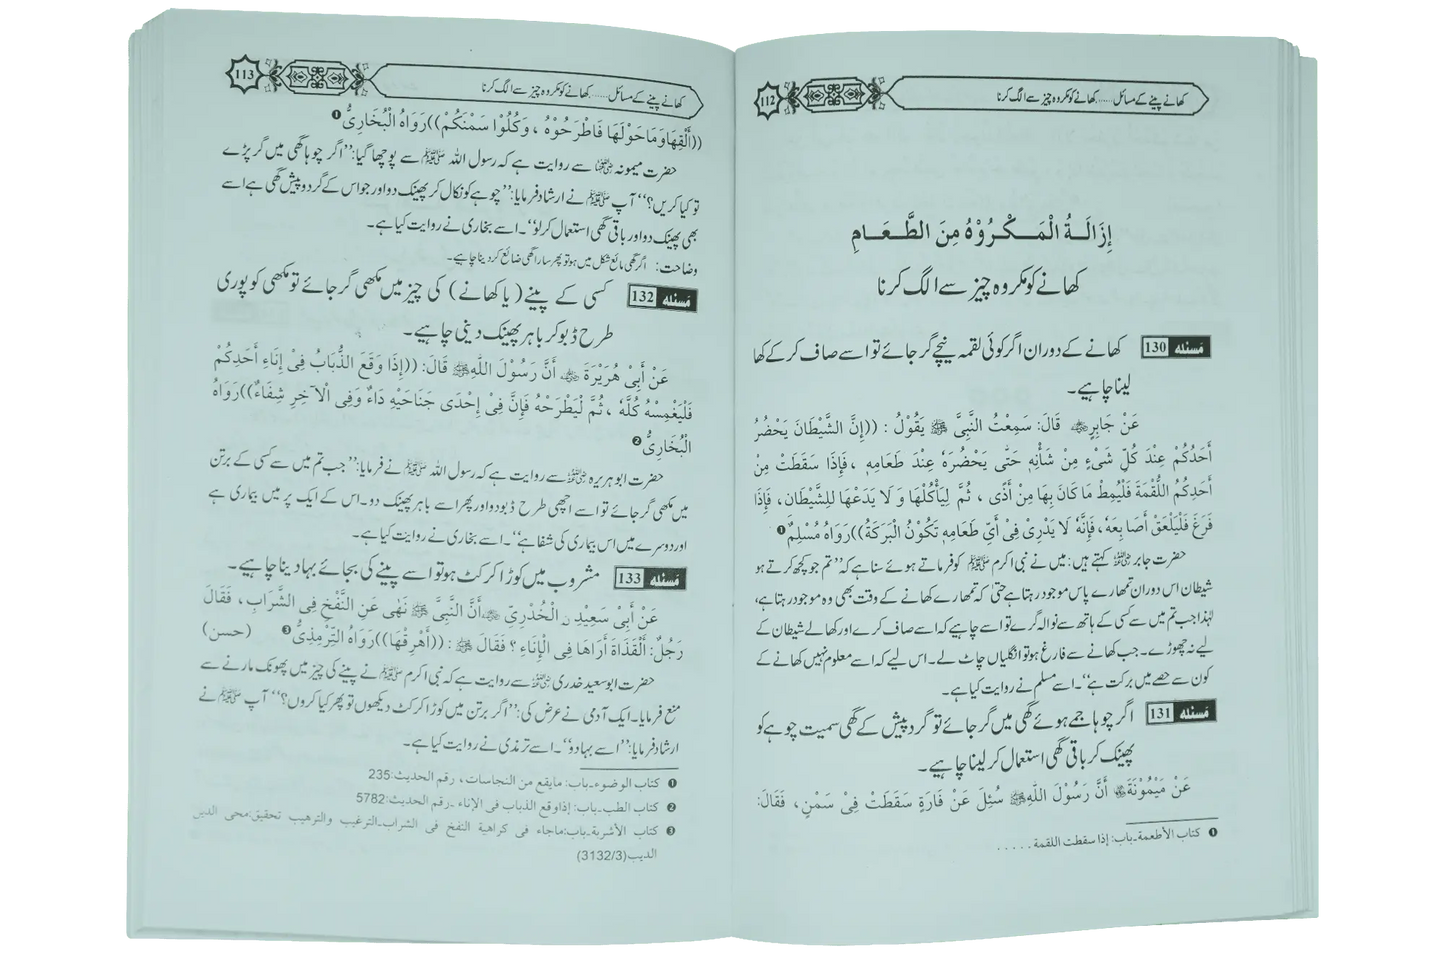 112
کھانے پینے کے مسائل......کھانے کو مکروہ چیز سے الگ کرنا
إِزَالَـةُ الْمَـكْـرُوْهُ مِنَ الطَّـعَـامِ
کھانے کو مکروہ چیز سے الگ کرنا
مَسئله 130 کھانے کے دوران اگر کوئی لقمہ نیچے گر جائے تو اسے صاف کر کے کھا
لینا چاہیے۔
عَنْ جَابِرٍ ؓ قَالَ: سَمِعْتُ النَّبِیَّ ﷺ يَقُوْلُ : ((إِنَّ الشَّيْطَانَ يَحْضُرُ
أَحَدُكُمْ عِنْدَ كُلِّ شَیْءٍ مِنْ شَأْنِهِ حَتّٰى يَحْضُرَهٗ عِنْدَ طَعَامِهِ ، فَإِذَا سَقَطَتْ مِنْ
أَحَدِكُمُ اللُّقْمَةَ فَلْيُمِطْ مَا كَانَ بِهَا مِنْ أَذًى ، ثُمَّ لِيَأْكُلْهَا وَ لَا يَدَعْهَا لِلشَّيْطَانِ، فَإِذَا
فَرَغَ فَلْيَلْعَقْ أَصَابِعَهٗ، فَإِنَّهٗ لَا يَدْرِىْ فِىْ أَىِّ طَعَامِهِ تَكُوْنُ الْبَرَكَةُ))رَوَاهُ مُسْلِمٌ ❶
حضرت جابر ؓ کہتے ہیں: میں نے نبی اکرم ﷺ کو فرماتے ہوئے سنا ہے کہ ’’تم جو کچھ کرتے ہو
شیطان اس دوران تمھارے پاس موجود رہتا ہے حتیٰ کہ تمھارے کھانے کے وقت بھی وہ موجود رہتا ہے،
لہٰذا جب تم میں سے کسی کے ہاتھ سے نوالہ گرے تو اسے چاہیے کہ اسے صاف کرے اور کھا لے شیطان کے
لیے نہ چھوڑے۔ جب کھانے سے فارغ ہو تو انگلیاں چاٹ لے۔ اس لیے کہ اسے معلوم نہیں کھانے کے
کون سے حصے میں برکت ہے‘‘۔ اسے مسلم نے روایت کیا ہے۔
مَسئله 131 اگر چوہا جمے ہوئے گھی میں گر جائے تو گرد پیش کے گھی سمیت چوہے کو
پھینک کر باقی گھی استعمال کر لینا چاہیے۔
عَنْ مَيْمُوْنَةَ ؓ أَنَّ رَسُوْلَ اللّٰهِ ﷺ سُئِلَ عَنْ فَارَةٍ سَقَطَتْ فِىْ سَمْنٍ ، فَقَالَ:
❶ كتاب الأطعمة۔باب: إذا سقطت اللقمة . . . . .
113
کھانے پینے کے مسائل......کھانے کو مکروہ چیز سے الگ کرنا
((أَلْقِهَا وَمَا حَوْلَهَا فَاطْرَحُوْهُ ، وَكُلُوْا سَمْنَكُمْ))رَوَاهُ الْبُخَارِىُّ ❶
حضرت میمونہ ؓ سے روایت ہے کہ رسول اللہ ﷺ سے پوچھا گیا: ’’اگر چوہا گھی میں گر پڑے
تو کیا کریں؟‘‘ آپ ﷺ نے ارشاد فرمایا: ’’چوہے کو نکال کر پھینک دو اور جو اس کے گرد و پیش گھی ہے اسے
بھی پھینک دو اور باقی گھی استعمال کر لو‘‘۔ اسے بخاری نے روایت کیا ہے۔
وضاحت: اگر گھی مائع شکل میں ہو تو پھر سارا گھی ضائع کر دینا چاہیے۔
مَسئله 132 کسی کے پینے (یا کھانے) کی چیز میں مکھی گر جائے تو مکھی کو پوری
طرح ڈبو کر باہر پھینک دینی چاہیے۔
عَنْ أَبِىْ هُرَيْرَةَ ؓ أَنَّ رَسُوْلَ اللّٰهِ ﷺ قَالَ: ((إِذَا وَقَعَ الذُّبَابُ فِىْ إِنَاءِ أَحَدِكُمْ
فَلْيَغْمِسْهُ كُلَّهٗ ، ثُمَّ لْيَطْرَحْهُ فَإِنَّ فِىْ إِحْدَى جَنَاحَيْهِ دَاءٌ وَفِى الْآخِرِ شِفَاءٌ))رَوَاهُ
الْبُخَارِىُّ ❷
حضرت ابو ہریرہ ؓ سے روایت ہے کہ رسول اللہ ﷺ نے فرمایا: ’’جب تم میں سے کسی کے برتن
میں مکھی گر جائے تو اسے اچھی طرح ڈبو دو اور پھر اسے باہر پھینک دو۔ اس کے ایک پر میں بیماری ہے
اور دوسرے میں اس بیماری کی شفا ہے‘‘۔ اسے بخاری نے روایت کیا ہے۔
مَسئله 133 مشروب میں کوڑا کرکٹ ہو تو اسے پینے کی بجائے بہا دینا چاہیے۔
عَنْ أَبِىْ سَعِيْدِ نِ الْخُدْرِىِّ ؓ أَنَّ النَّبِىَّ ﷺ نَهٰى عَنِ النَّفْخِ فِى الشَّرَابِ ، فَقَالَ
رَجُلٌ: أَلْقَذَاةَ أَرَاهَا فِى الْإِنَاءِ ؟ فَقَالَ ﷺ : ((أَهْرِقْهَا))رَوَاهُ التِّرْمِذِىُّ ❸ (حسن)
حضرت ابو سعید خدری ؓ سے روایت ہے کہ نبی اکرم ﷺ نے پینے کی چیز میں پھونک مارنے سے
منع فرمایا۔ ایک آدمی نے عرض کی: ’’اگر برتن میں کوڑا کرکٹ دیکھوں تو پھر کیا کروں؟‘‘ آپ ﷺ نے
ارشاد فرمایا: ’’اسے بہا دو‘‘۔ اسے ترمذی نے روایت کیا ہے۔
❶ كتاب الوضوء۔باب: مايقع من النجاسات، رقم الحديث:235
❷ كتاب الطب۔باب: إذا وقع الذباب فى الإناء ۔رقم الحديث:5782
❸ كتاب الأشربة۔باب:ماجاء فى كراهية النفخ فى الشراب۔الترغيب والترهيب تحقيق:محى الدين
الديب(3132/3)